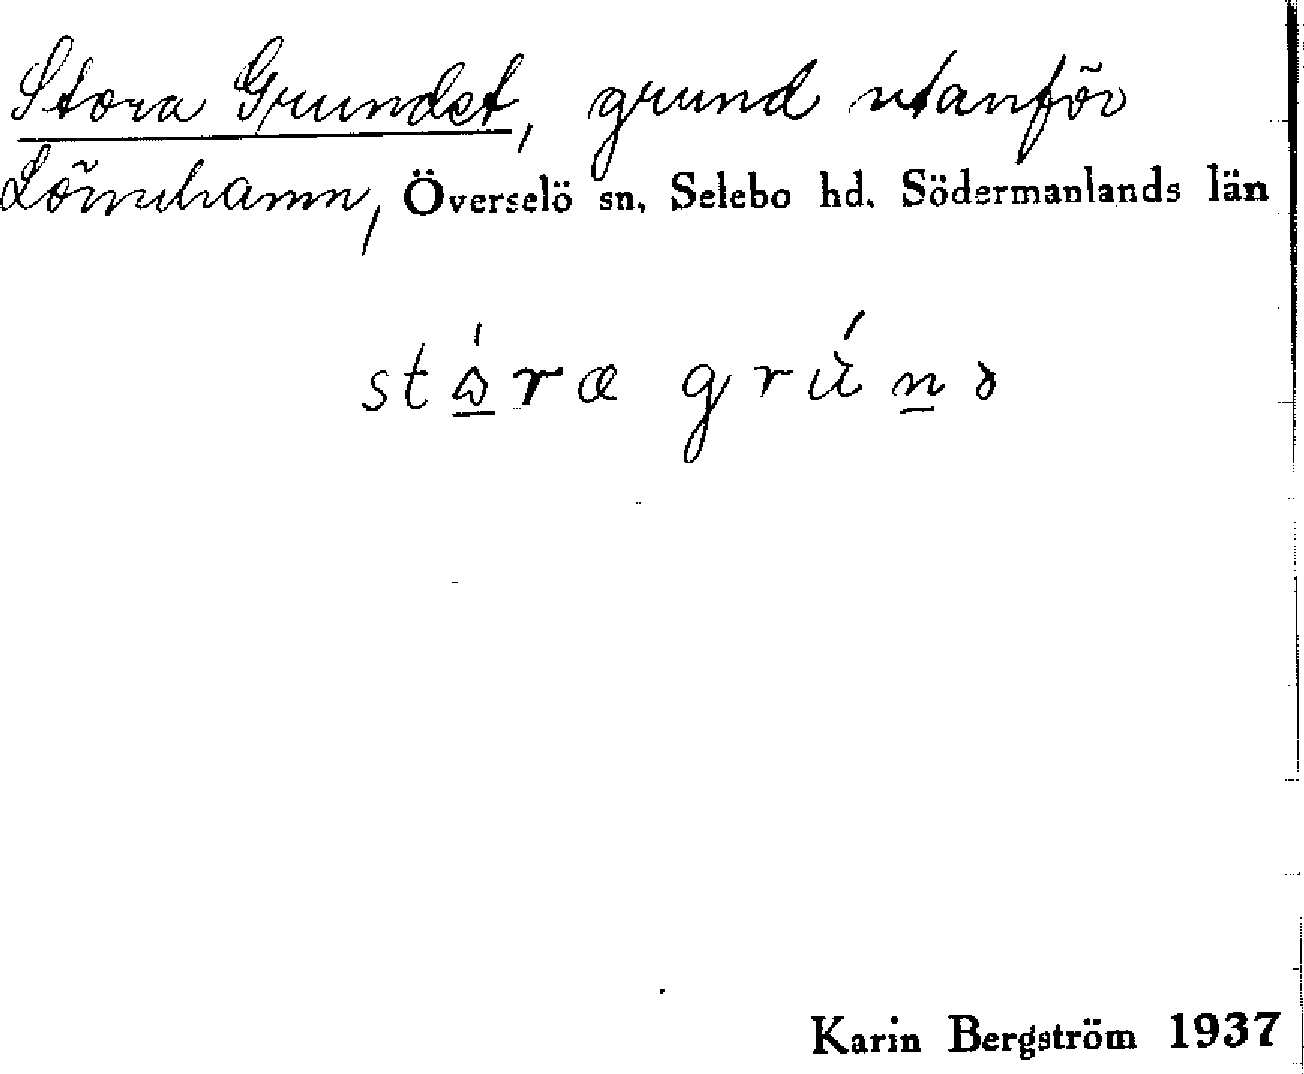 Stora Grundet, grund utanför
Överselö sn, Selebo hd. Södermanlands län
Karin Bergström 1937